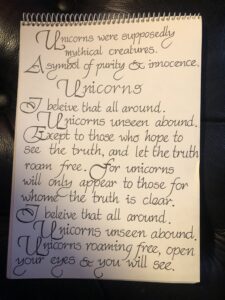 Unicorns were supposedly
mythical creatures.
A symbol of purity & innocence.
Unicorns
I beleive that all around.
Unicorns unseen abound.
Except to those who hope to
see the truth, and let the truth
roam free. For unicorns
will only appear to those for
whome the truth is clear.
I beleive that all around.
Unicorns unseen abound,
Unicorns roaming free, open
your eyes & you will see.